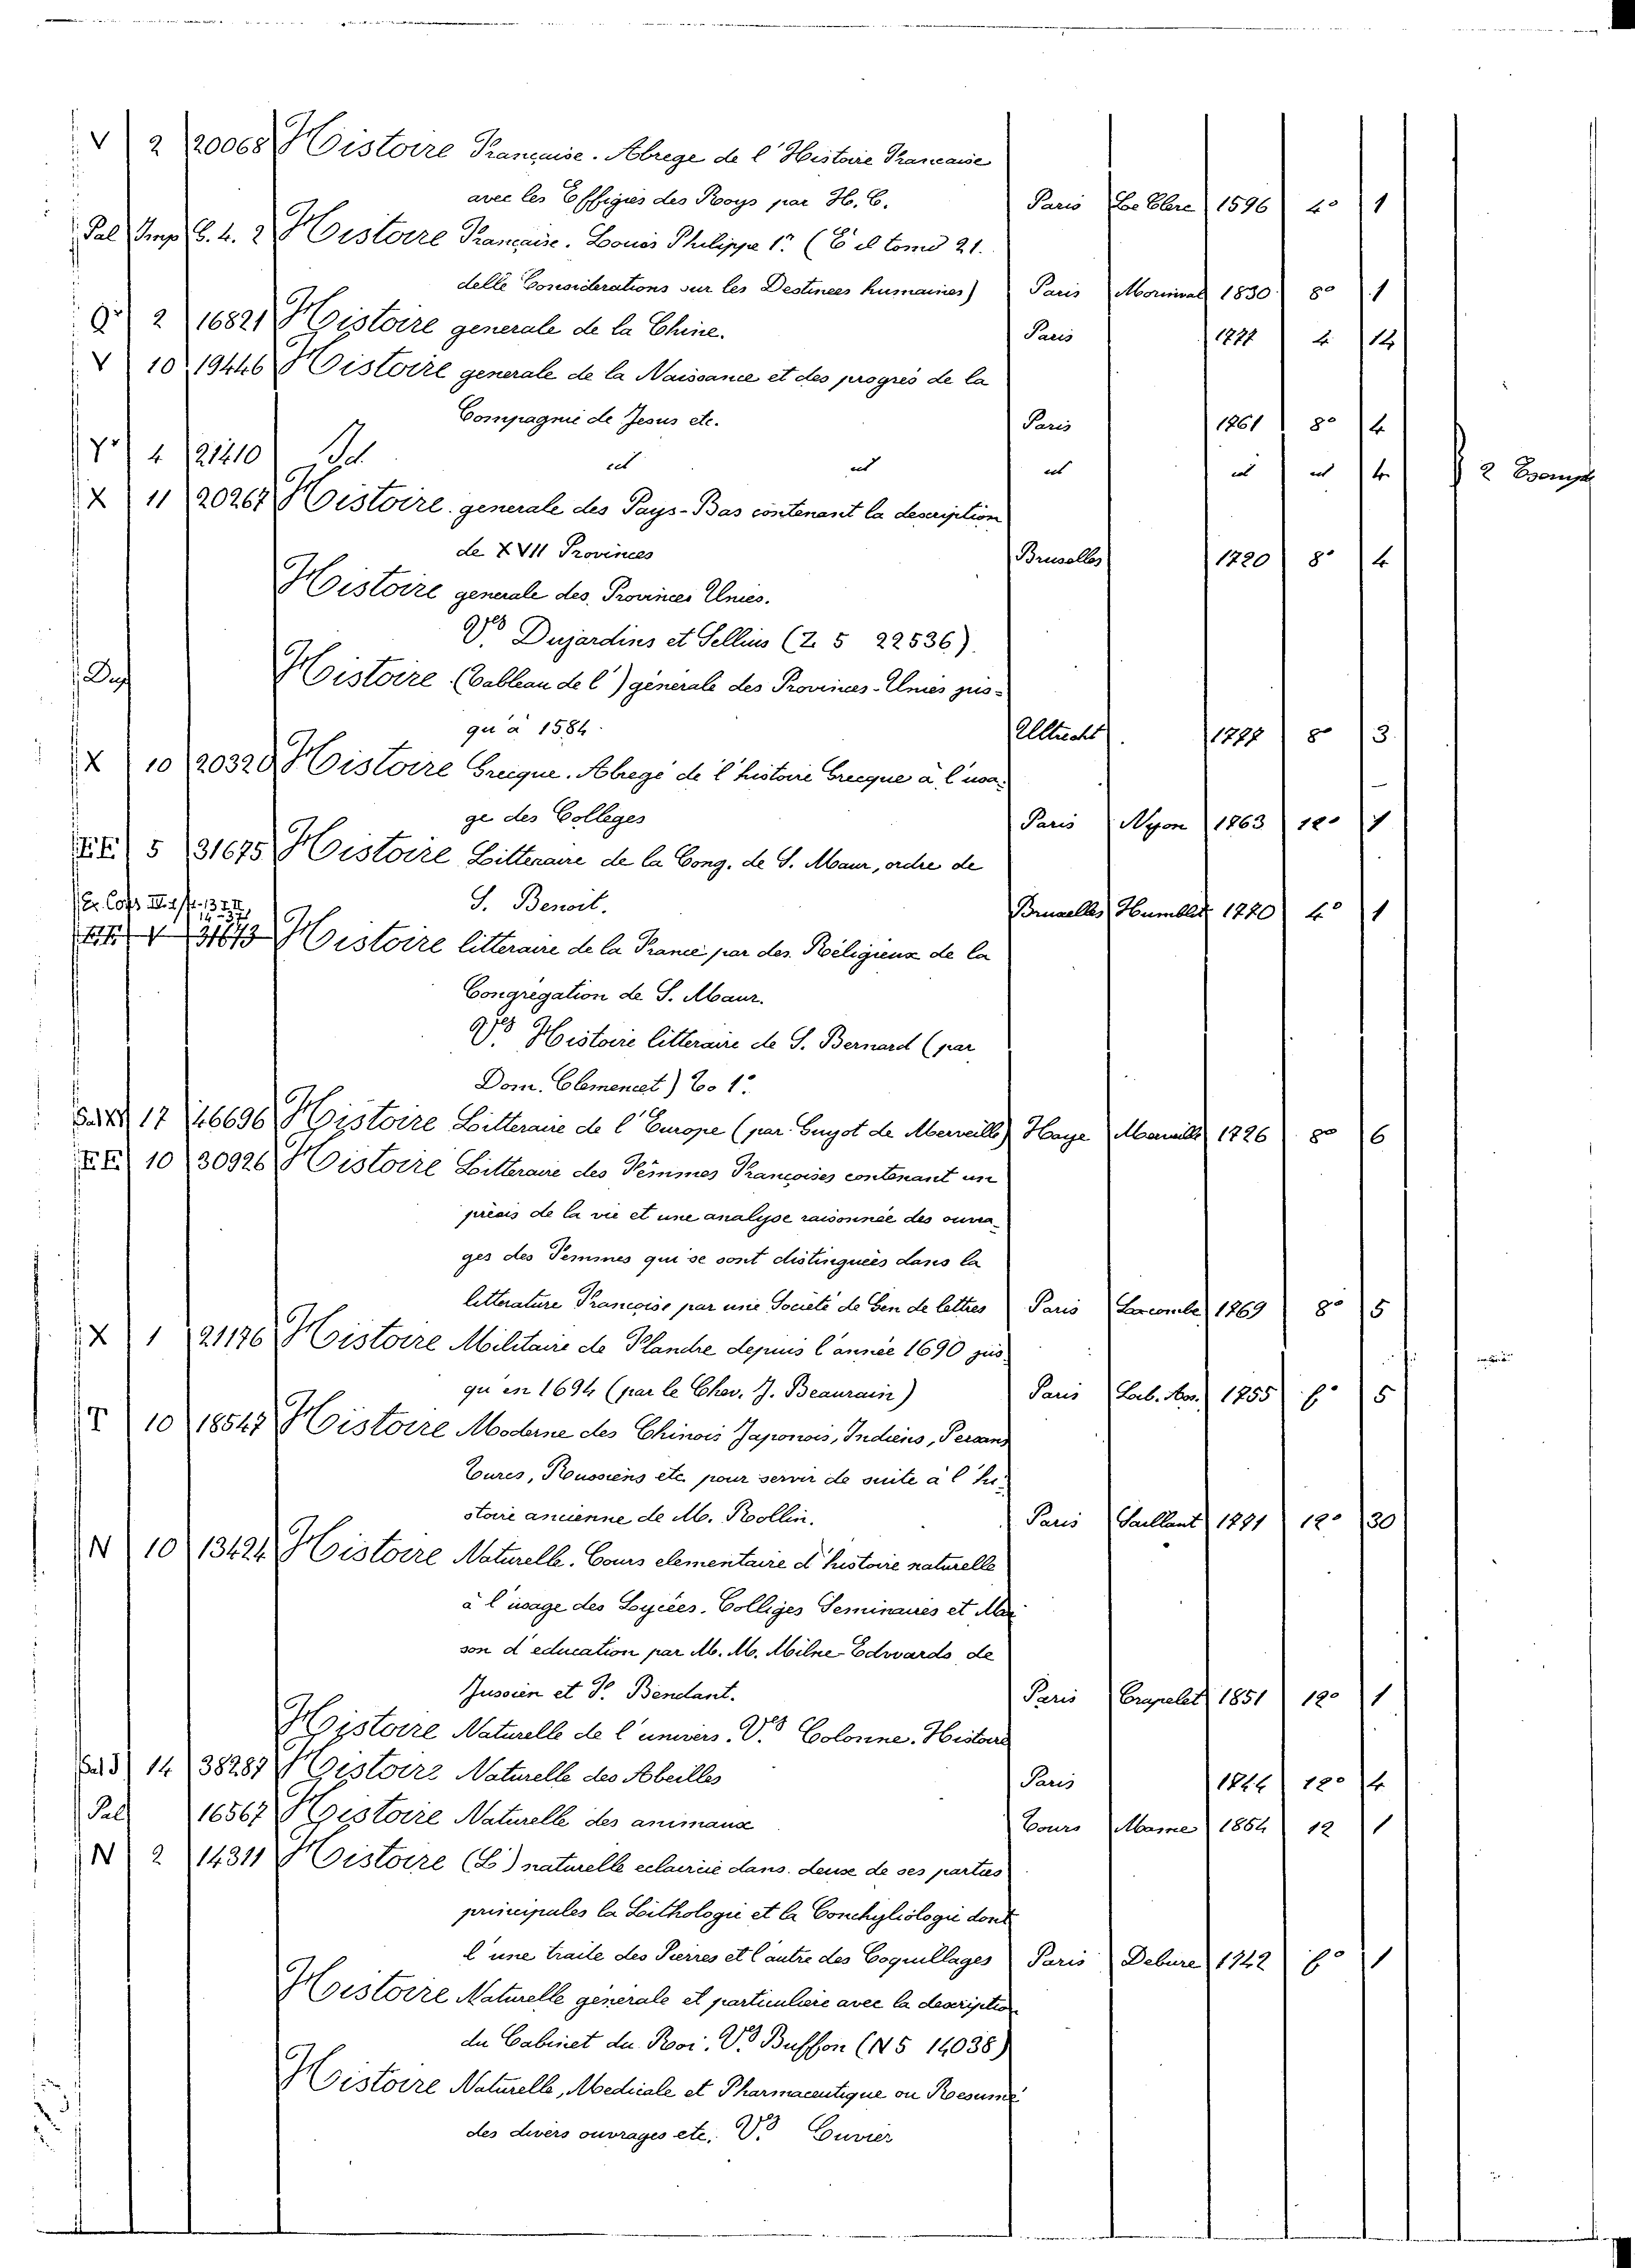 V 2 20068 Histoire Française. Abrege de l'Histoire Francaise
avec les Effigies des Roys par H. C. Paris Le Clerc 1596 4° 1
Pal Imp C. 4. 2 Histoire Française. Louis Philippe 1° (È il tomo 21.
delle Considerations sur les Destinees humaines) Paris Morinval 1830 8° 1
2 16821 Histoire generale de la Chine. Paris 1777 4 12
V 10 19446 Histoire generale de la Naissance et des progrés de la
Compagnie de Jesus etc. Paris 1761 8° 4
4 21410 Id. id id id id id 4 2 Esempl
X 11 20267 Histoire generale des Pays-Bas contenant la description
de XVII Provinces Bruselles 1720 8° 4
Histoire generale des Provinces Unies.
V.es Dujardins et Sellius (Z 5 22536).
Dup Histoire (Tableau de l') génerale des Provinces-Unies jus-
qu'à 1584. Utrecht 1777 8° 3
X 10 20320 Histoire Grecque. Abregé de l'histoire Grecque à l'usa-
ge des Colleges Paris Nyon 1763 12° 1
EE 5 31675 Histoire Litteraire de la Cong. de S. Maur, ordre de
S. Benoit. Bruxelles Humblot 1770 4° 1
31673 Histoire litteraire de la France par des Réligieux de la
Congrégation de S. Maur.
V.es Histoire litteraire de S. Bernard (par
Dom. Clemencet) To 1°.
17 46696 Histoire Litteraire de l'Europe (par Guyot de Merveille) Haye Merveille 1726 8° 6
EE 10 30926 Histoire Litteraire des Femmes Françoises contenant un
précis de la vie et une analyse raisonnée des ouvra-
ges des Femmes qui se sont distinguées dans la
litterature Françoise par une Societé de Gen de lettres Paris Lacombe 1769 8° 5
X 1 21176 Histoire Militaire de Flandre depuis l'année 1690 jus-
qu'en 1694 (par le Chev. J. Beaurain) Paris 1755 f° 5
T 10 18547 Histoire Moderne des Chinois Japonois, Indiens, Persans
Turcs, Russiens etc. pour servir de suite à l'hi-
stoire ancienne de M. Rollin. Paris Saillant 1771 12° 30
N 10 13424 Histoire Naturelle. Cours elementaire d'histoire naturelle
à l'usage des Lycées. Colliges Seminaires et Mai
son d'education par M. M. Milne-Edwards de
Jussien et F. Bendant. Paris Crapelet 1851 12° 1
Histoire Naturelle de l'univers. V.es Colonne. Histoire
14 38287 Histoire Naturelle des Abeilles Paris 1744 12° 4
Pal 16567 Histoire Naturelle des animaux Tours Mame 1864 12 1
N 2 14311 Histoire (L') naturelle eclaircie dans deux de ses parties
principales la Lithologie et la Conchyliologie dont
l'une traite des Pierres et l'autre des Coquillages Paris Debure 1742 f° 1
Histoire Naturelle générale et particuliere avec la description
du Cabinet du Roi. V.es Buffon (N 5 14038)
Histoire Naturelle, Medicale et Pharmaceutique ou Resumé
des divers ouvrages etc. V.es Cuvier